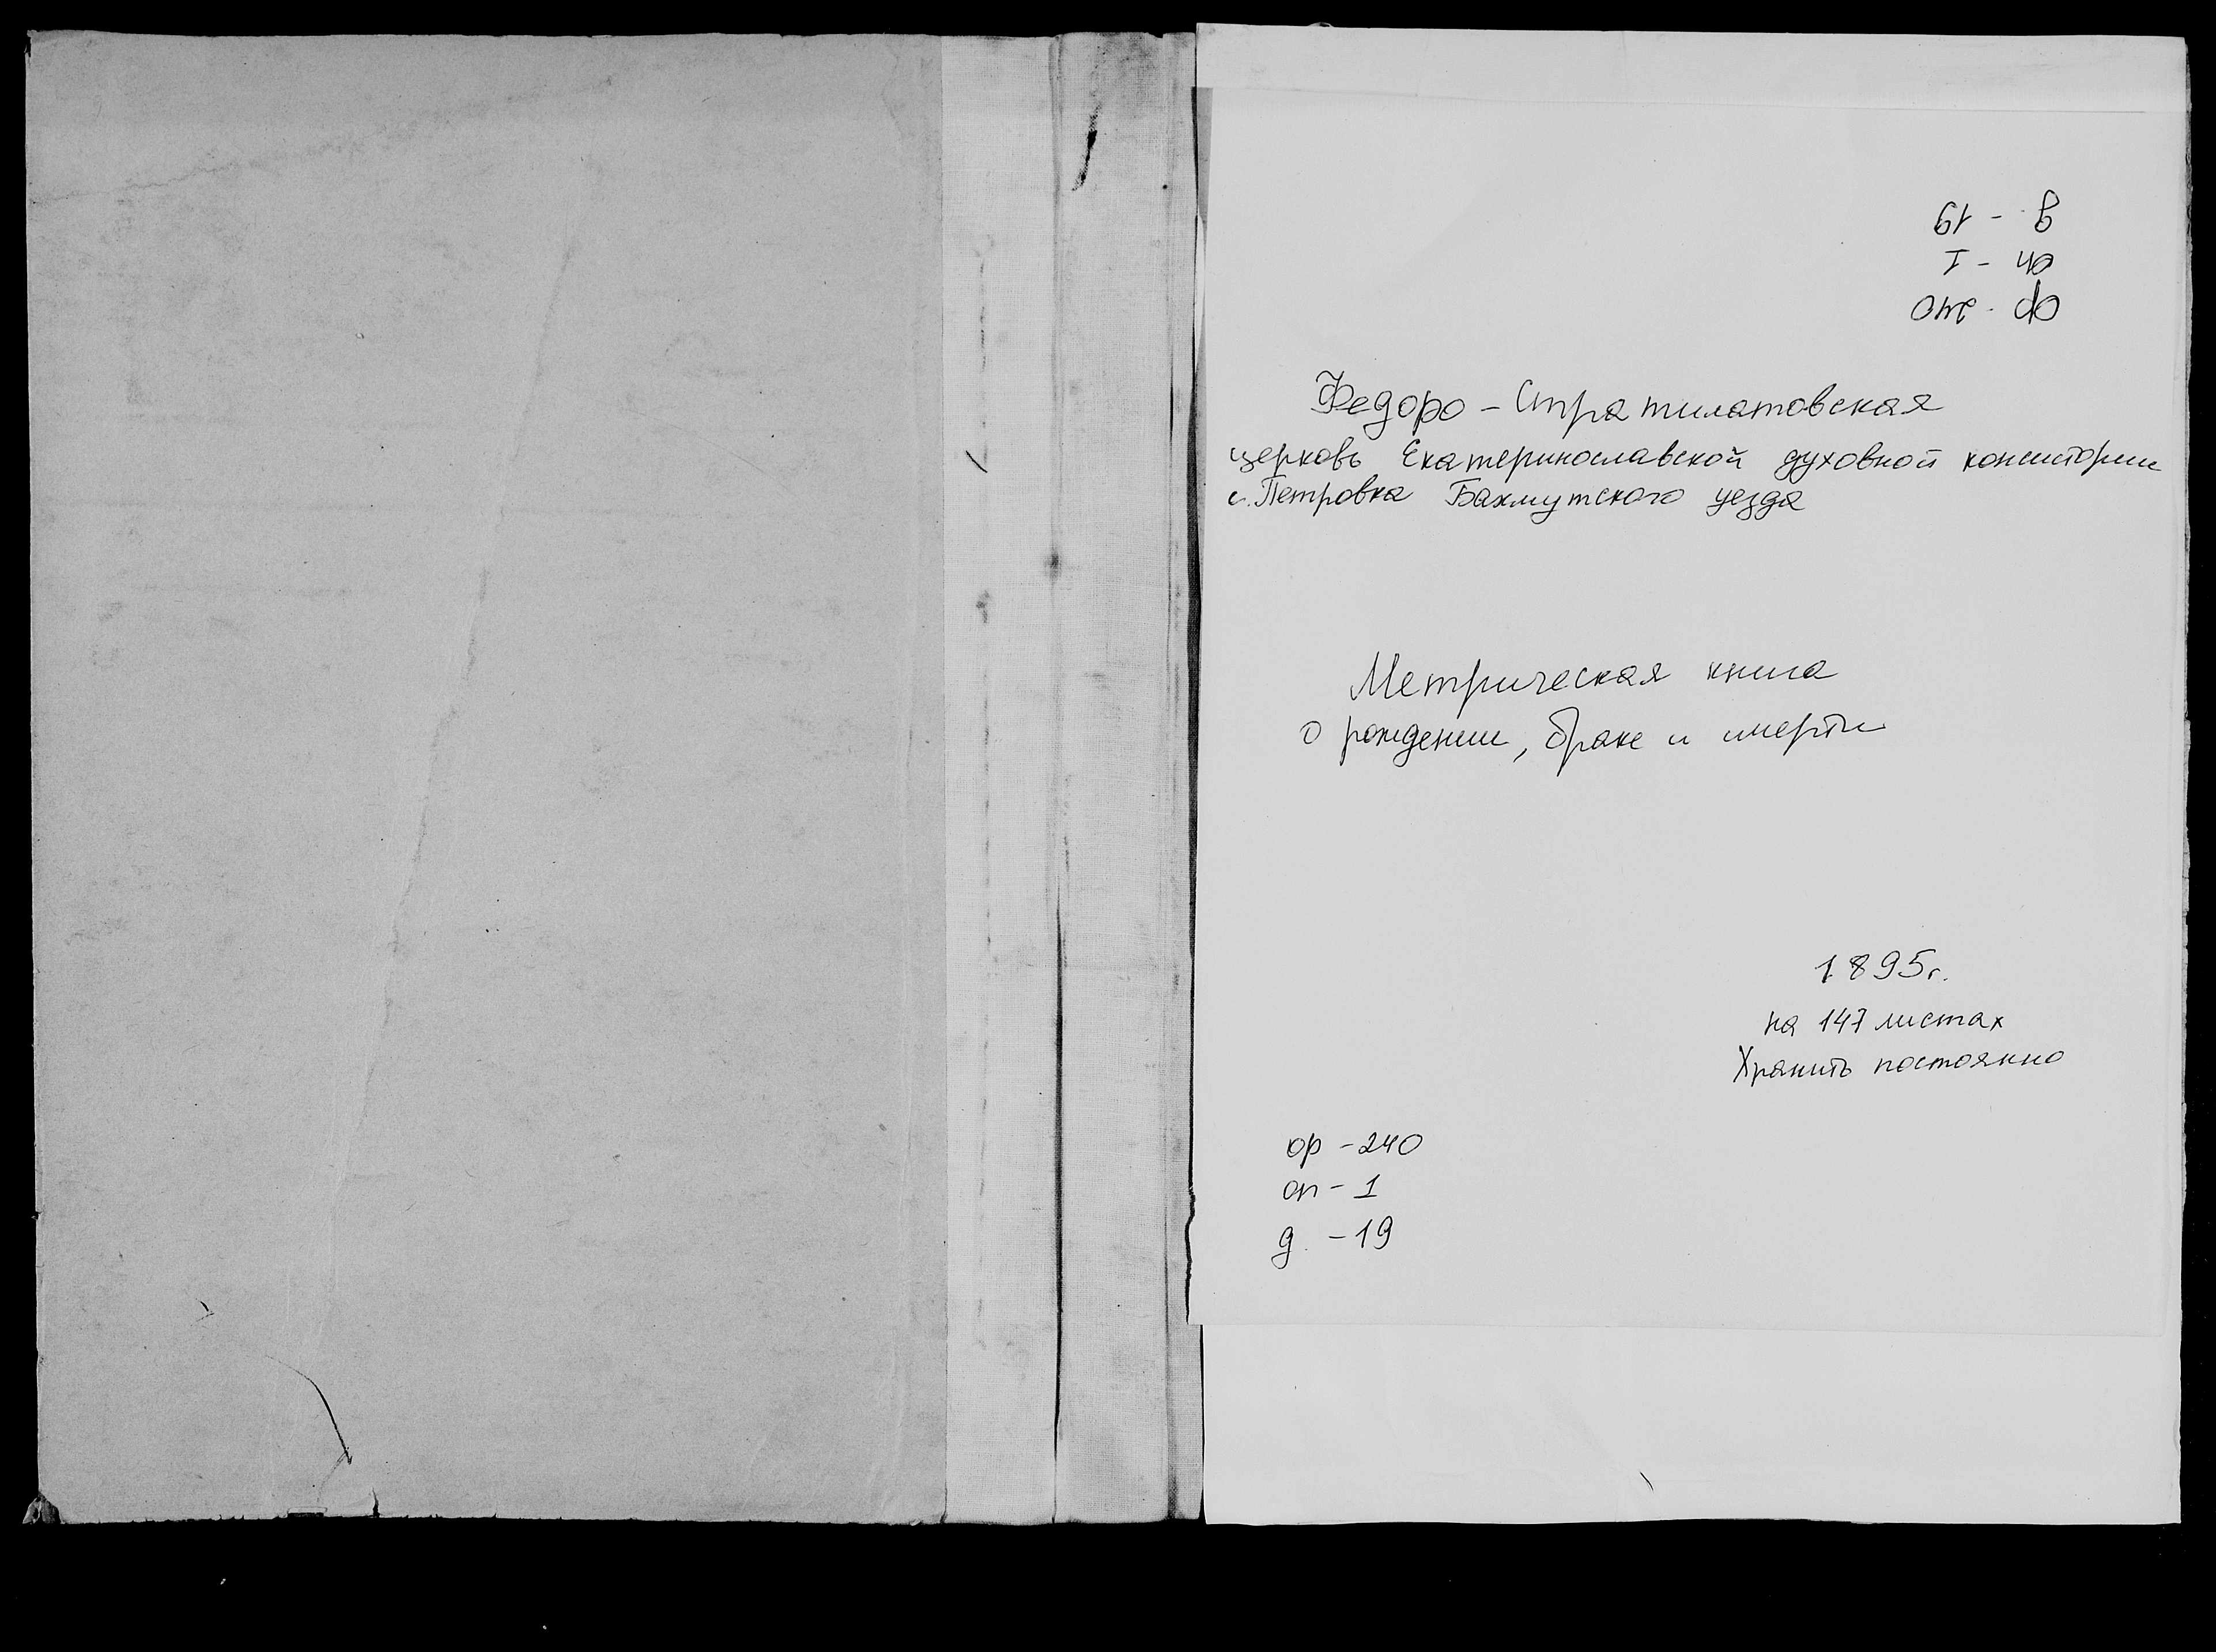 ф - 240
оп - I
д - 19
Федоро-Стратилатовская
церковь Екатеринославской духовной консистории
с. Петровка Бахмутского уезда
Метрическая книга
о рождении, браке и смерти
1895г.
на 147 листах
Хранить постоянно
ф - 240
оп - 1
д. - 19